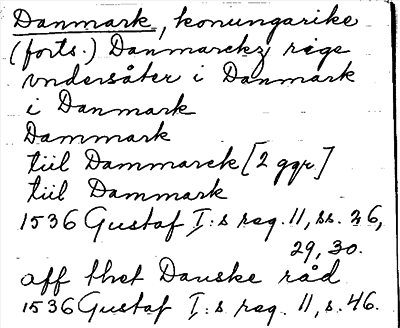 Danmark, konungarike
(forts.) Danmarckz rige
vndersåter i Danmark
i Danmark
Dammark
tiil Dammarck [2 ggr]
tiil Dammark
1536 Gustaf I:s reg. 11, ss. 26,
29, 30.
aff thet Danske råd
1536 Gustaf I:s reg. 11, s. 46.